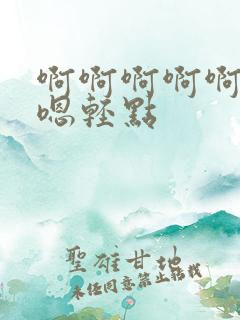 啊啊啊啊啊
嗯輕點
聖雄甘地
未任同意禁止轉載